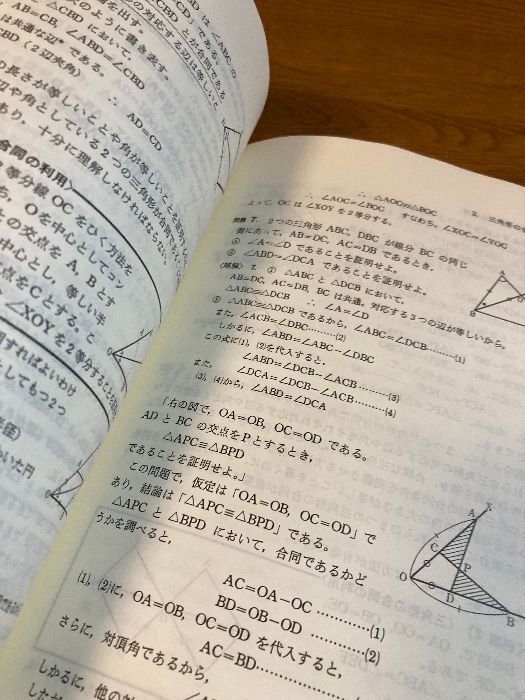 は ∠ABC の
△CBD とが合同である
」である。
の対応する辺は等しいこ
次のように書き表す。
を出す。
△CBD において,
AB=CB, ∠ABD=∠CBD
は共通な辺。である。
CBD (2辺夾角)
∴ AD=CD
の長さが等しいことや角が等しいことを
辺や角としている2つの三角形が合同で
あり, 十分に理解しなければならない。
合同の利用〉
等分線 OC をひく方法を
ち, Oを中心として
との交点を A, B とす
中心とし, 等しい半
点をCとする。こ
∠XOY を2等分すること
用すればよいわけ
としてもつ2つ
かいた円
∴ △AOC≡△BOC
∴ ∠AOC=∠BOC すなわち, ∠XOC=∠YOC
よって, OC は ∠XOY を2等分する。
問題 7. 2つの三角形 ABC, DBC が線分 BC の同じ
側にあって, AB=DC, AC=DB であるとき,
① ∠A=∠D であることを証明せよ。
② ∠ABD=∠DCA であることを証明せよ。
〈解〉 7. ① △ABC と △DCB において,
AB=DC, AC=DB, BC は共通. 対応する3つの辺が等しいから,
△ABC≡△DCB ∴ ∠A=∠D
② △ABC≡△DCB であるから, ∠ABC=∠DCB………(1)
また, ∠ACB=∠DBC………(2)
しかるに, ∠ABD=∠ABC-∠DBC
この式に(1), (2)を代入すると,
∠ABD=∠DCB-∠ACB………(3)
また, ∠DCA=∠DCB-∠ACB………(4)
(3), (4)から, ∠ABD=∠DCA
「右の図で, OA=OB, OC=OD である。
AD と BC の交点をPとするとき,
△APC≡△BPD
であることを証明せよ。」
この問題で, 仮定は「OA=OB, OC=OD」で
あり, 結論は「△APC≡△BPD」である。
△APC と △BPD において, 合同であるかど
うかを調べると,
AC=OA-OC …………(1)
BD=OB-OD …………(2)
(1), (2)に, OA=OB, OC=OD を代入すると,
AC=BD…………
さらに, 対頂角であるから,
しかるに, 他の
A
B
X
A
C
P
O
D
B